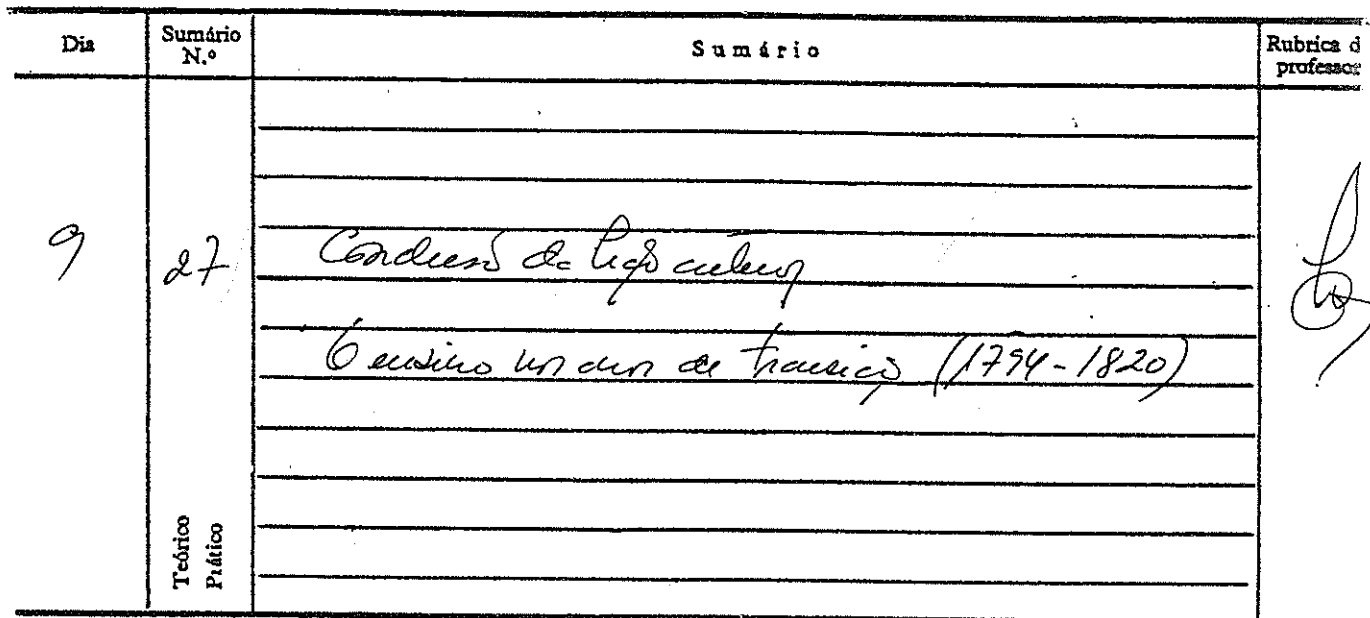 Dia
Sumário N.º
Sumário
Rubrica d
professor
9
27
Conclusão da lição anterior
O ensino nos anos de transição (1794-1820)
Teórico
Prático